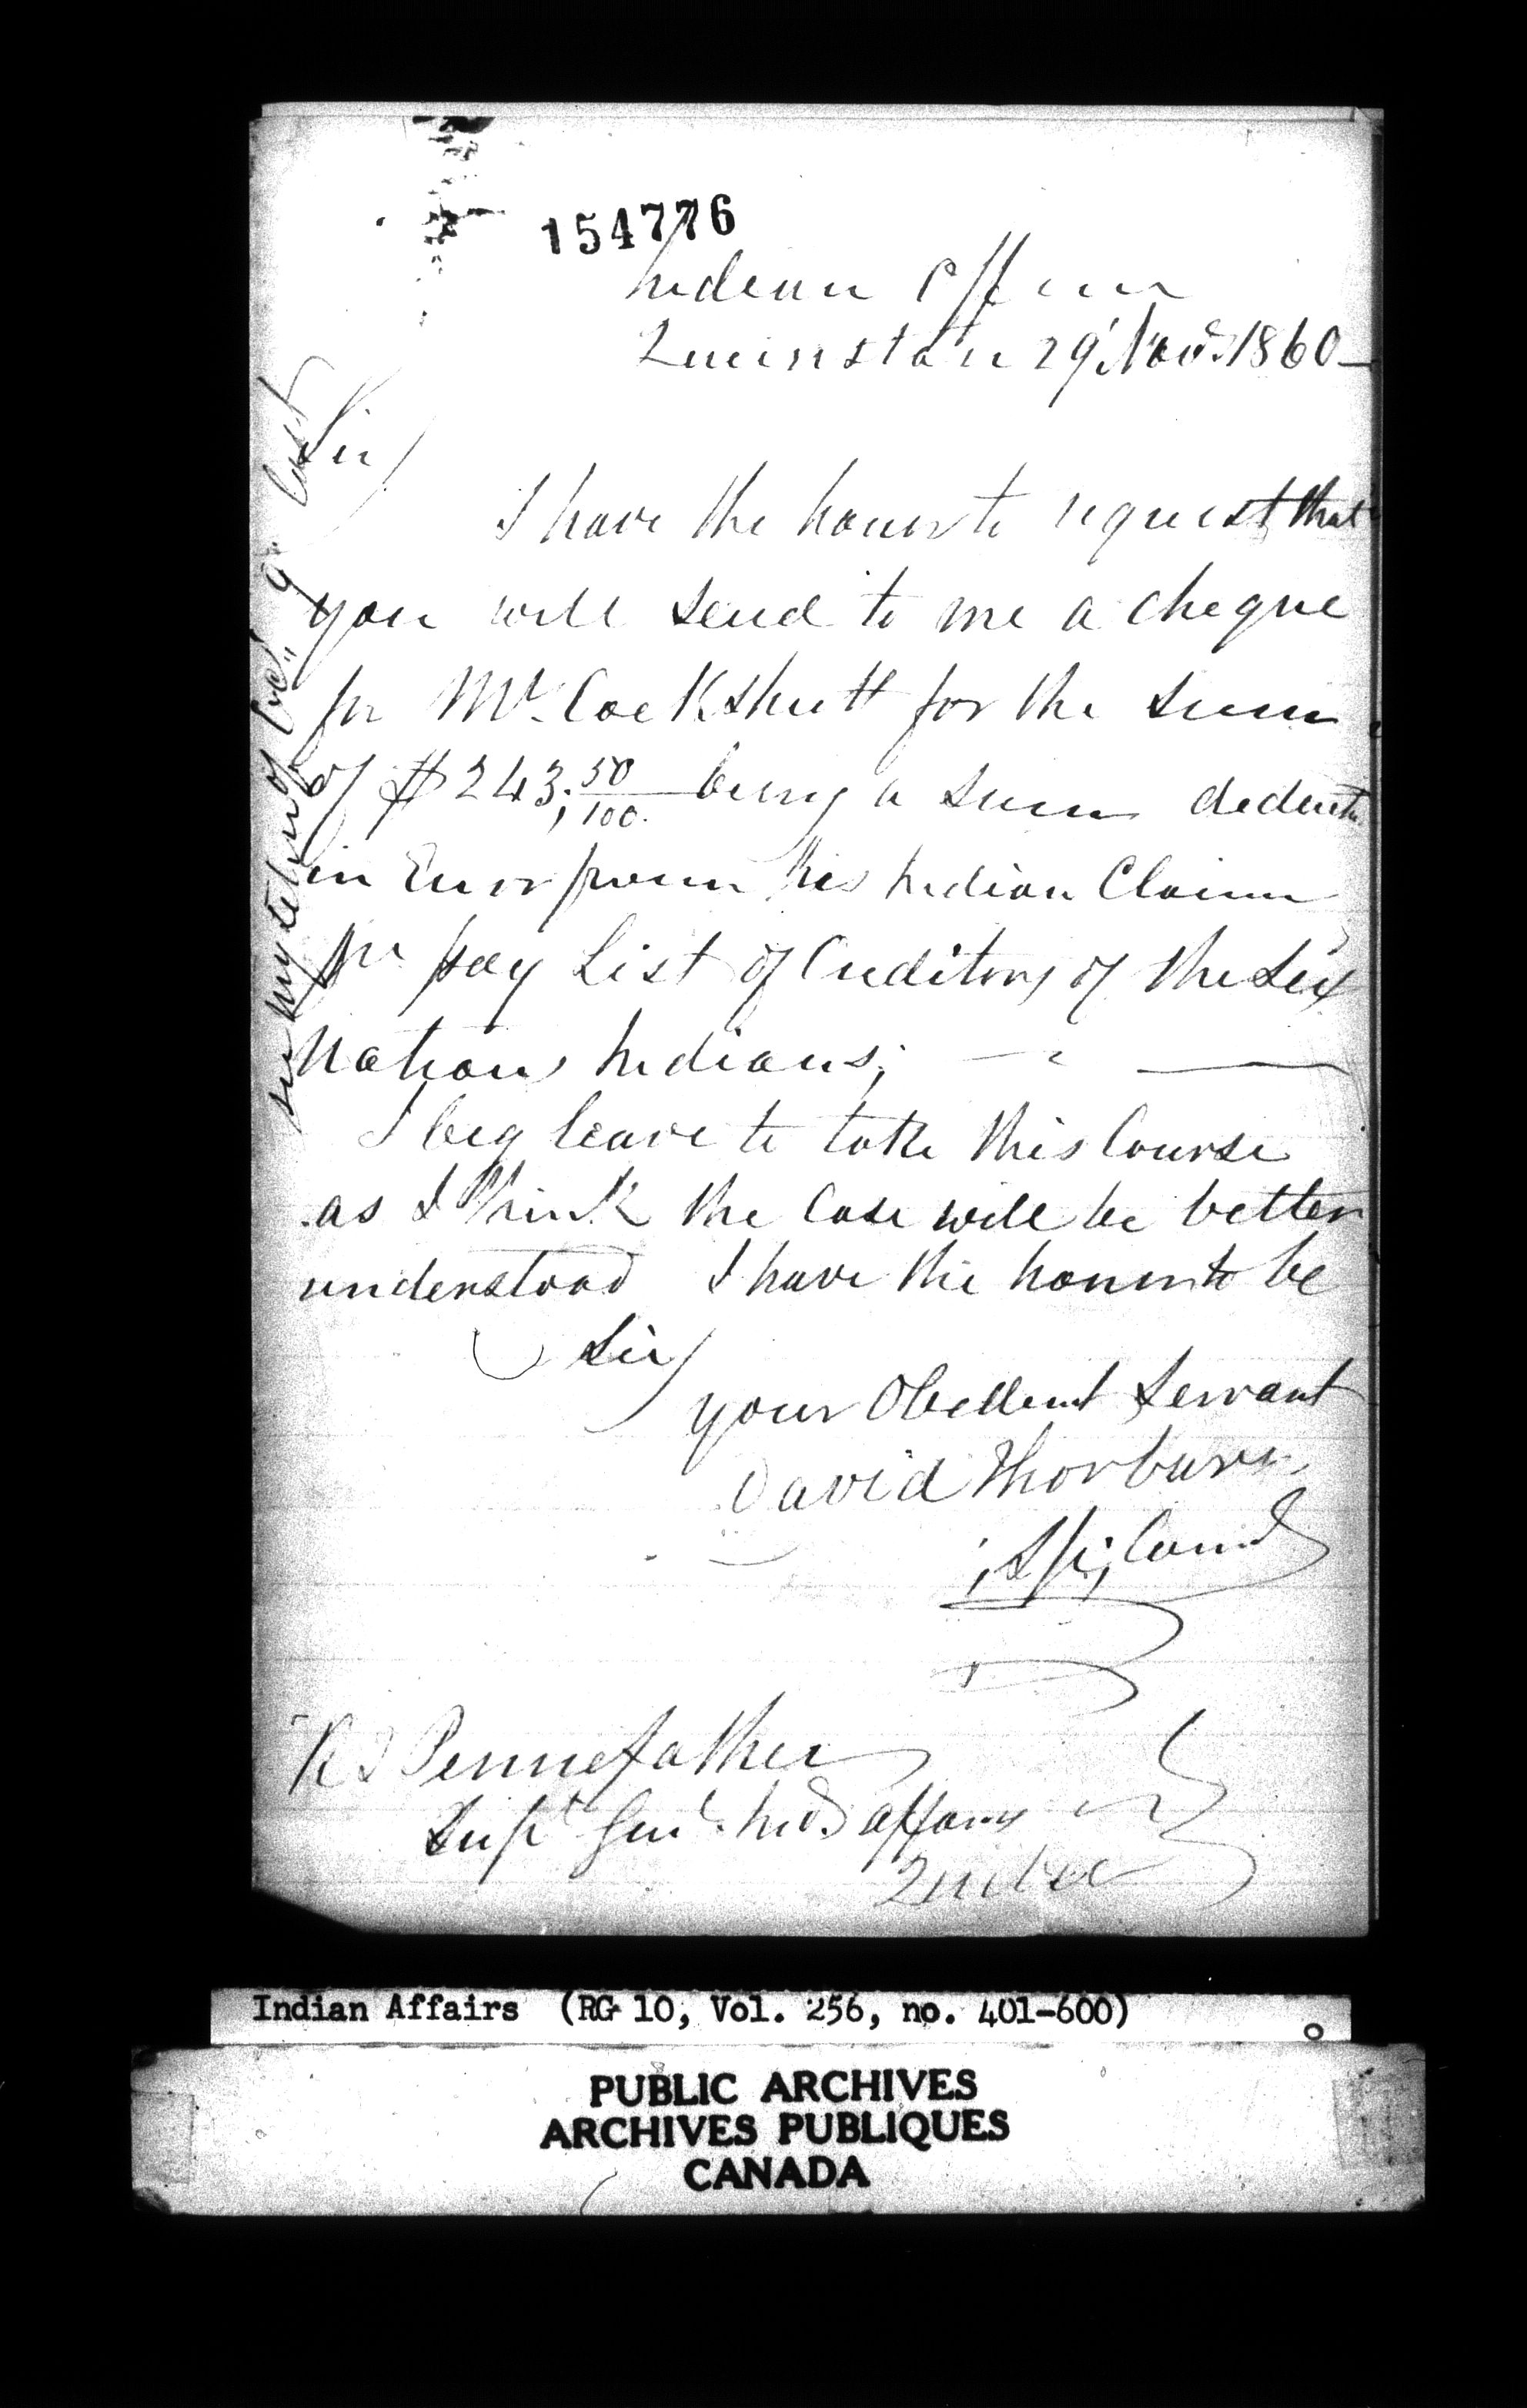 154776
Indian Office
Queenston 29 Nov. 1860
Sir
I have the honor to request that
you will send to me a cheque
for Mr. Cockshutt for the sum
of $243; 50/100 being a sum deducted
in Error from his Indian Claim
pr pay List of Creditors of the Six
Nations Indians;
I beg leave to take this Course
as I think the Case will be better
understood I have the honor to be
Sir
your Obedient Servant
David Thorburn
Comr
R T Pennefather
Supt Genl Ind affairs
Quebec
see my letter of Oct 9 last
Indian Affairs (RG 10, Vol. 256, no. 401-600)
PUBLIC ARCHIVES
ARCHIVES PUBLIQUES
CANADA